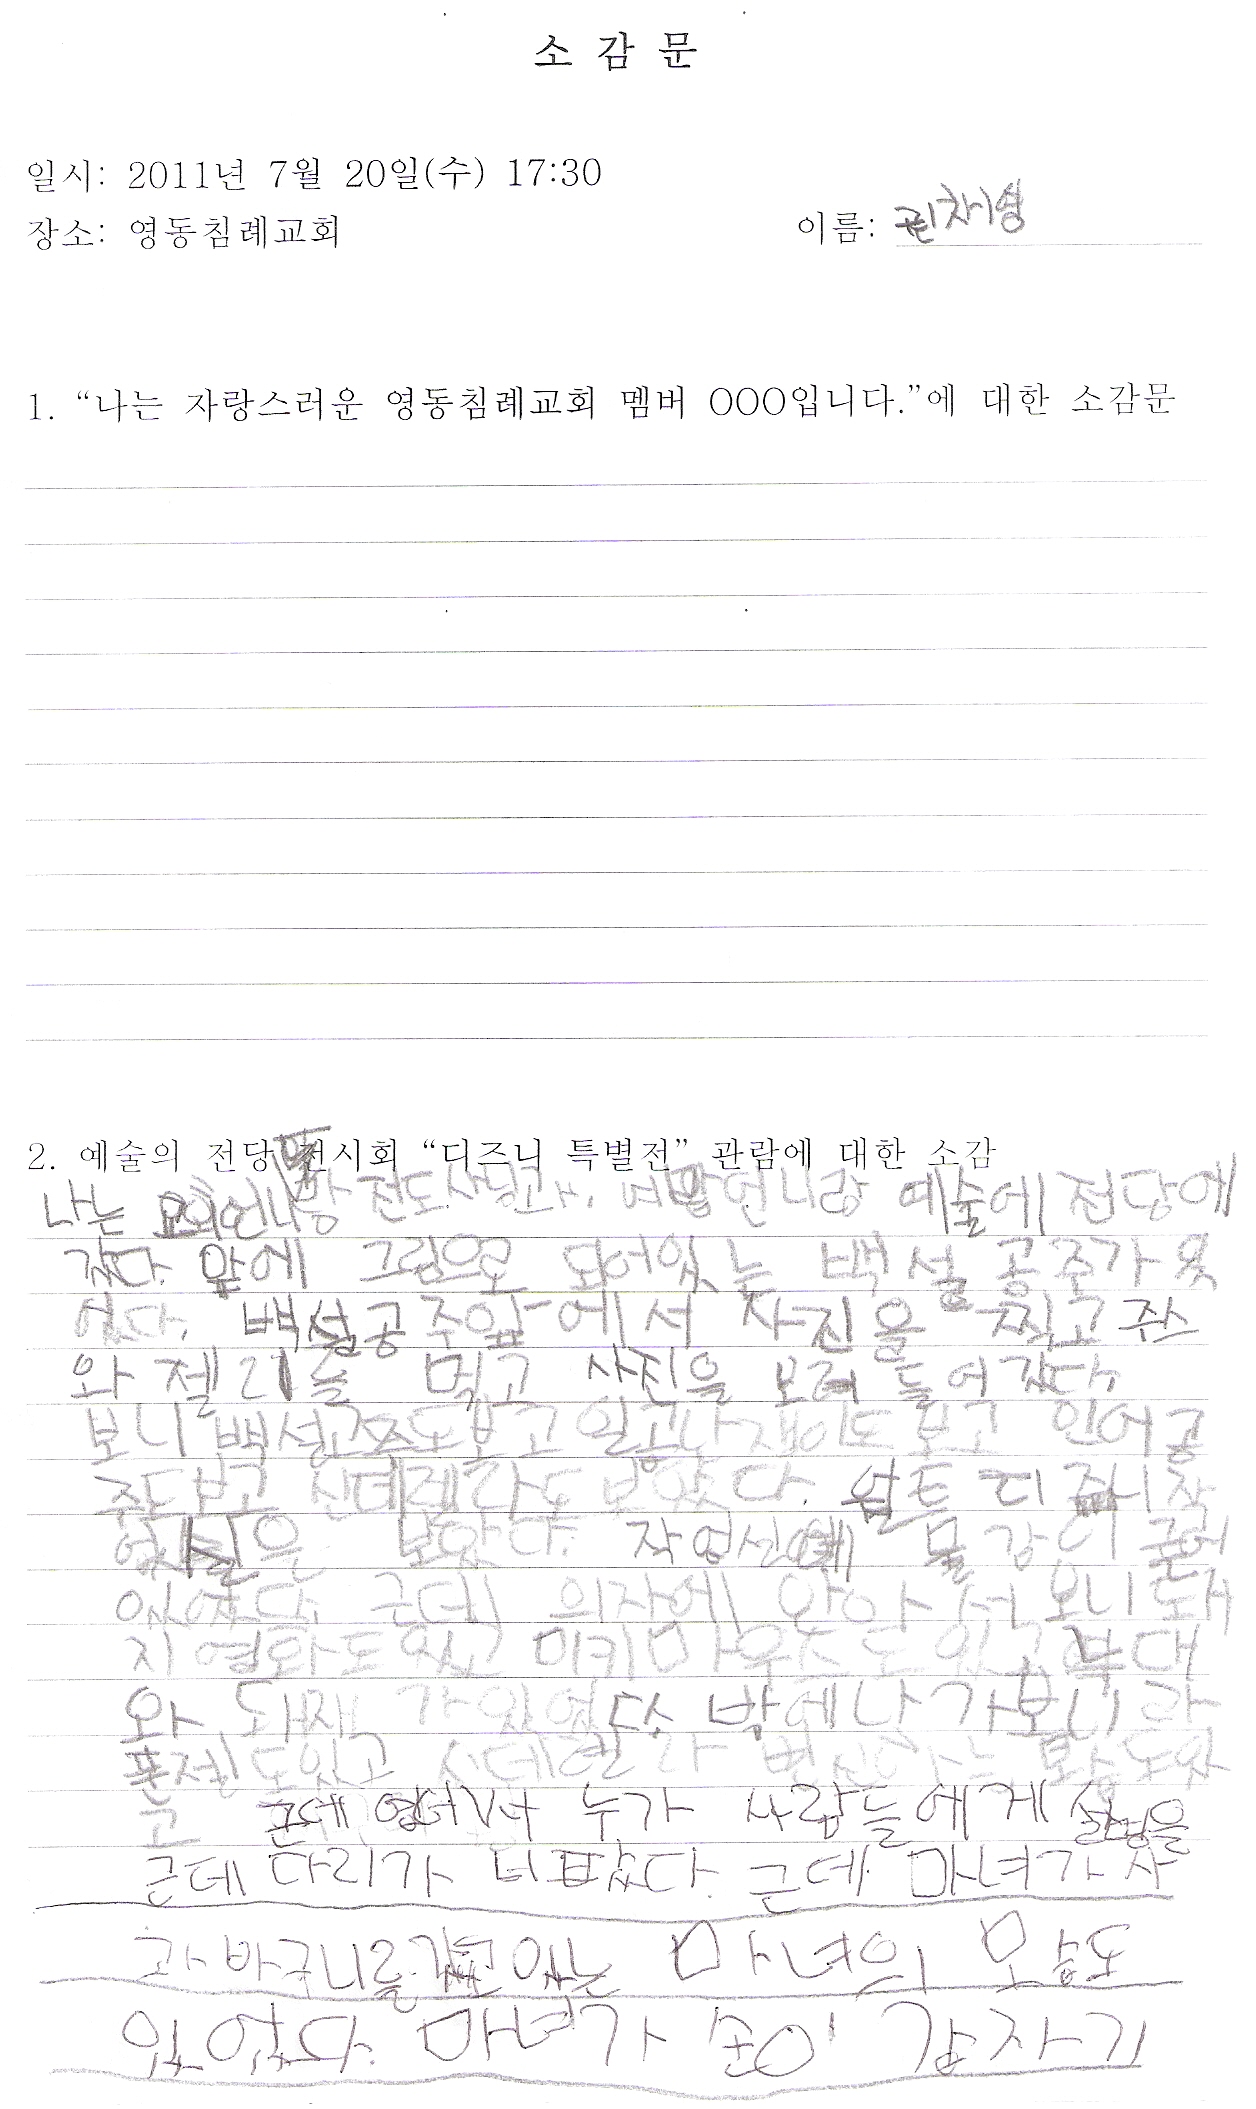 소 감 문
일시: 2011년 7월 20일(수) 17:30
장소: 영동침례교회
이름: 권채영
1. “나는 자랑스러운 영동침례교회 멤버 OOO입니다.”에 대한 소감문
2. 예술의 전당 전시회 “디즈니 특별전” 관람에 대한 소감
나는 전도사님과, 언니랑 예술에 전당에
갔다. 앞에 그림으로 되어있는 백설 공주가 있
었다. 백설공주앞에서 사진을 찍고 쥬스
와 젤리를 먹고 사진을 보려 들어 갔다.
보니 백설공주도보고 일곱난쟁이도 보고 인어공
주도보고 신데렐라도 보았다. 월트 디즈니 작
업실을 보았다. 작업실에 물감이 굳어
있었다. 근데 의자에 앉아서 보니 돼
지 영화도있고 미키마우스도 있고 늑대
와 돼지가 있었다. 밖에 나가보니 라
푼젤도있고 신데렐라 모습도있
고 근데 누가 사람들에게
근데 다리가 아팠다. 근데 마녀가 사
과 바구니를 갖고있는 마녀의 모습도
있었다. 마녀가 손이 갑자기